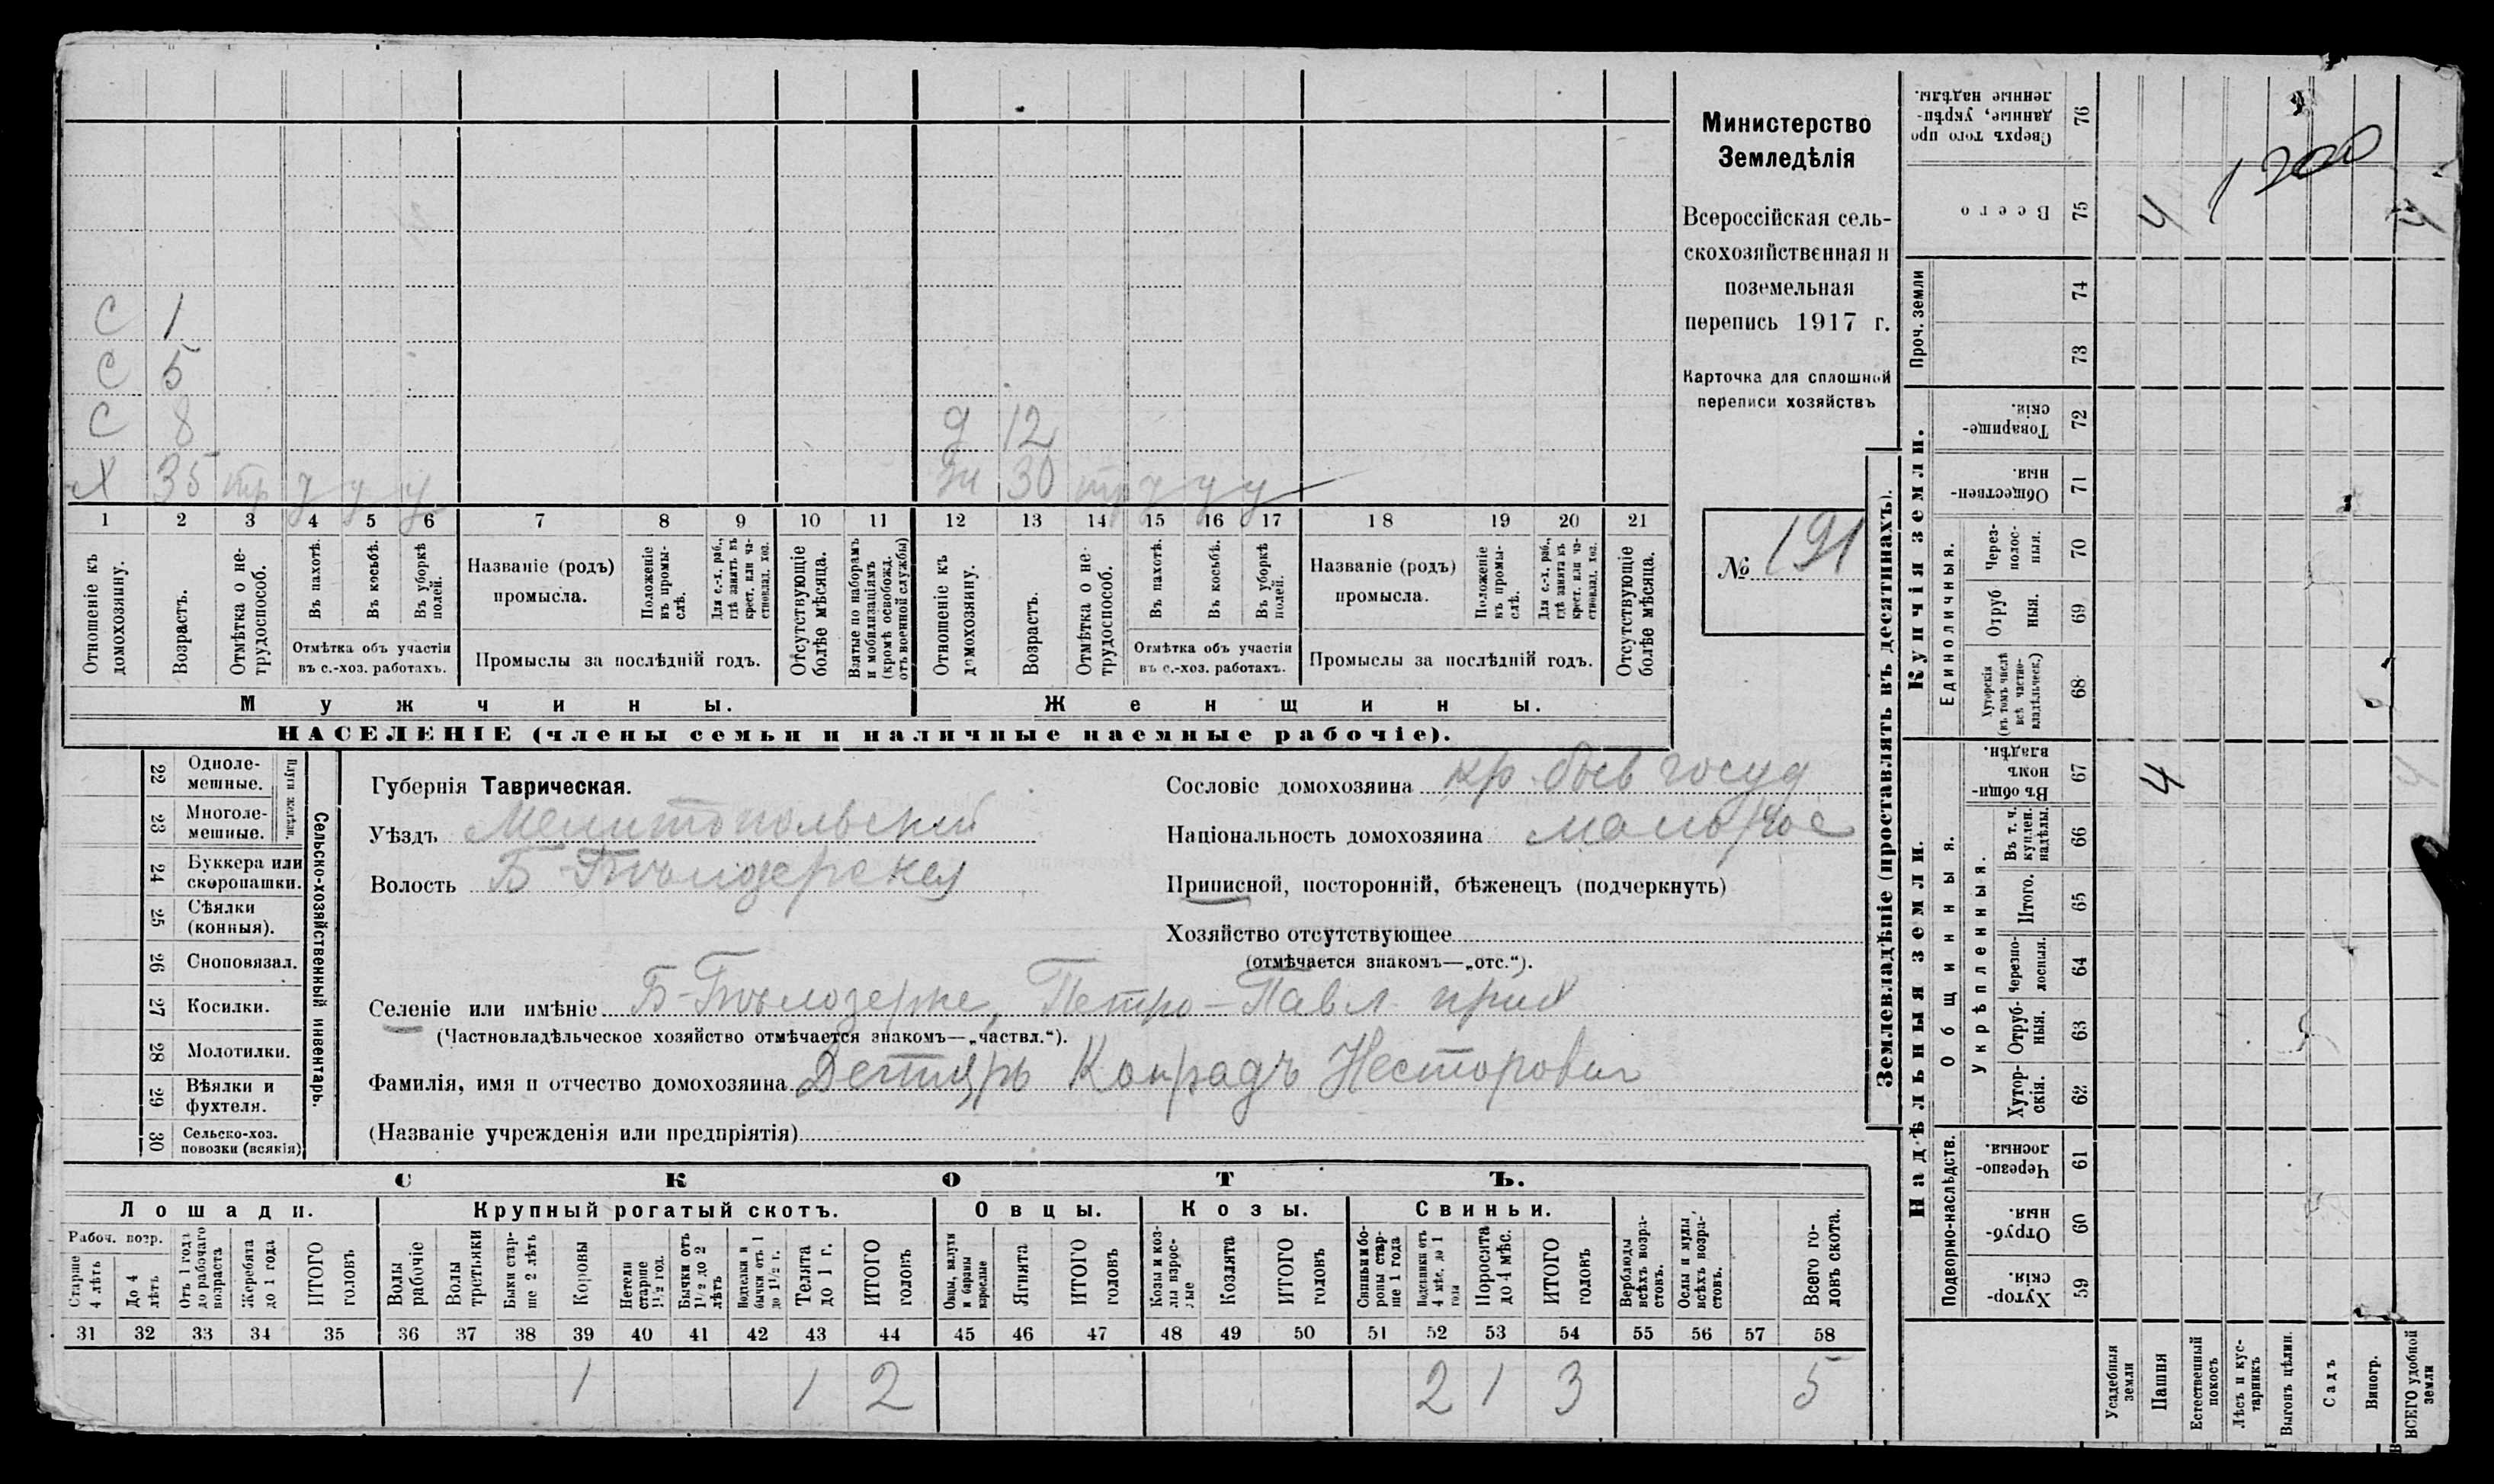 Министерство
Земледѣлія
Всероссійская сель-
скохозяйственная и
поземельная
перепись 1917 г.
Карточка для сплошной
переписи хозяйствъ
№ 191
С 1
С 5
С 8
Х 35 тр у у у
д 12
30 тр у у у
1 2 3 4 5 6 7 8 9 10 11 12 13 14 15 16 17 18 19 20 21
Отношеніе къ домохозяину.
Возрастъ.
Отмѣтка о не-трудоспособ.
Въ пахотѣ.
Въ косьбѣ.
Въ уборкѣ полей.
Отмѣтка объ участіи
въ с.-хоз. работахъ.
Названіе (родъ)
промысла.
Положеніе въ промы-слѣ.
Для с.-х. раб., гдѣ занятъ въ крест. или ча-стновлад. хоз.
Промыслы за послѣдній годъ.
Отсутствующіе болѣе мѣсяца.
Взятые по наборамъ и мобилизаціямъ (кромѣ освобожд. отъ военной службы)
Отношеніе къ домохозяину.
Возрастъ.
Отмѣтка о не-трудоспособ.
Въ пахотѣ.
Въ косьбѣ.
Въ уборкѣ полей.
Отмѣтка объ участіи
въ с.-хоз. работахъ.
Названіе (родъ)
промысла.
Положеніе въ промы-слѣ.
Для с.-х. раб., гдѣ занята къ крест. или ча-стновлад. хоз.
Промыслы за послѣдній годъ.
Отсутствующіе болѣе мѣсяца.
Мужчины. Женщины.
НАСЕЛЕНІЕ (члены семьи и наличные наемные рабочіе).
22 Одноле-мешные.
23 Многоле-мешные.
Плуги желѣзн.
24 Буккера или скоропашки.
25 Сѣялки (конныя).
26 Сноповязал.
27 Косилки.
28 Молотилки.
29 Вѣялки и фухтеля.
30 Сельско-хоз. повозки (всякія)
Сельско-хозяйственный инвентарь.
Губернія Таврическая.
Уѣздъ Мелитопольскій
Волость Б-Бѣлозерская
Сословіе домохозяина кр. бывъ госуд
Національность домохозяина малорос
Приписной, посторонній, бѣженецъ (подчеркнуть)
Хозяйство отсутствующее
(отмѣчается знакомъ—„отс.“).
Селеніе или имѣніе Б-Бѣлозерке, Петро-Павл прих
(Частновладѣльческое хозяйство отмѣчается знакомъ—„частвл.“).
Фамилія, имя и отчество домохозяина Дегтярь Конрадъ Несторович
(Названіе учрежденія или предпріятія)
СКОТЪ.
Лошади. Крупный рогатый скотъ. Овцы. Козы. Свиньи.
Рабоч. возр.
Старше 4 лѣтъ
До 4 лѣтъ
Отъ 1 года до рабочаго возраста
Жеребята до 1 года
ИТОГО головъ
Волы рабочіе
Волы третьяки
Быки стар-ше 2 лѣтъ
Коровы
Нетели старше 1½ год.
Бычки отъ 1½ до 2 лѣтъ
Подтелки и бычки отъ 1 до 1½ г.
Телята до 1 г.
ИТОГО головъ
Овцы, валухи и бараны взрослые
Ягнята
ИТОГО головъ
Козы и коз-лы взрос-лые
Козлята
ИТОГО головъ
Свиньи и бо-ровы стар-ше 1 года
Подсвинки отъ 4 мѣс. до 1 года
Поросята до 4 мѣс.
ИТОГО головъ
Верблюды всѣхъ возра-стовъ.
Ослы и мулы всѣхъ возра-стовъ.
Всего го-ловъ скота.
31 32 33 34 35 36 37 38 39 40 41 42 43 44 45 46 47 48 49 50 51 52 53 54 55 56 57 58
1 1 2 2 1 3 5
Землевладѣніе (проставлять въ десятинахъ).
Сверхъ того про-данные, укрѣп-ленные надѣлы. 76
Всего 75 4
1200
Проч. земли 74
73
Купчія земли.
Товарище-скія. 72
Обществен-ныя. 71
Единоличныя.
Через-полос-ныя. 70
Отруб-ныя. 69
Хуторскія (въ томъ числѣ всѣ частно-владѣльческ.) 68
Надѣльныя земли.
Общинныя.
Въ общи-номъ владѣн. 67 4
Укрѣпленныя.
Въ т. ч. куплен. надѣлы. 66
Итого. 65
Черезпо-лосныя. 64
Отруб-ныя. 63
Хутор-скія. 62
Подворно-наслѣдств.
Черезпо-лосныя. 61
Отруб-ныя. 60
Хутор-скія. 59
Усадебныя земли
Пашня
Естественный покосъ
Лѣсъ и кус-тарникъ
Выгонъ цѣлин.
Садъ
Виногр.
ВСЕГО удобной земли